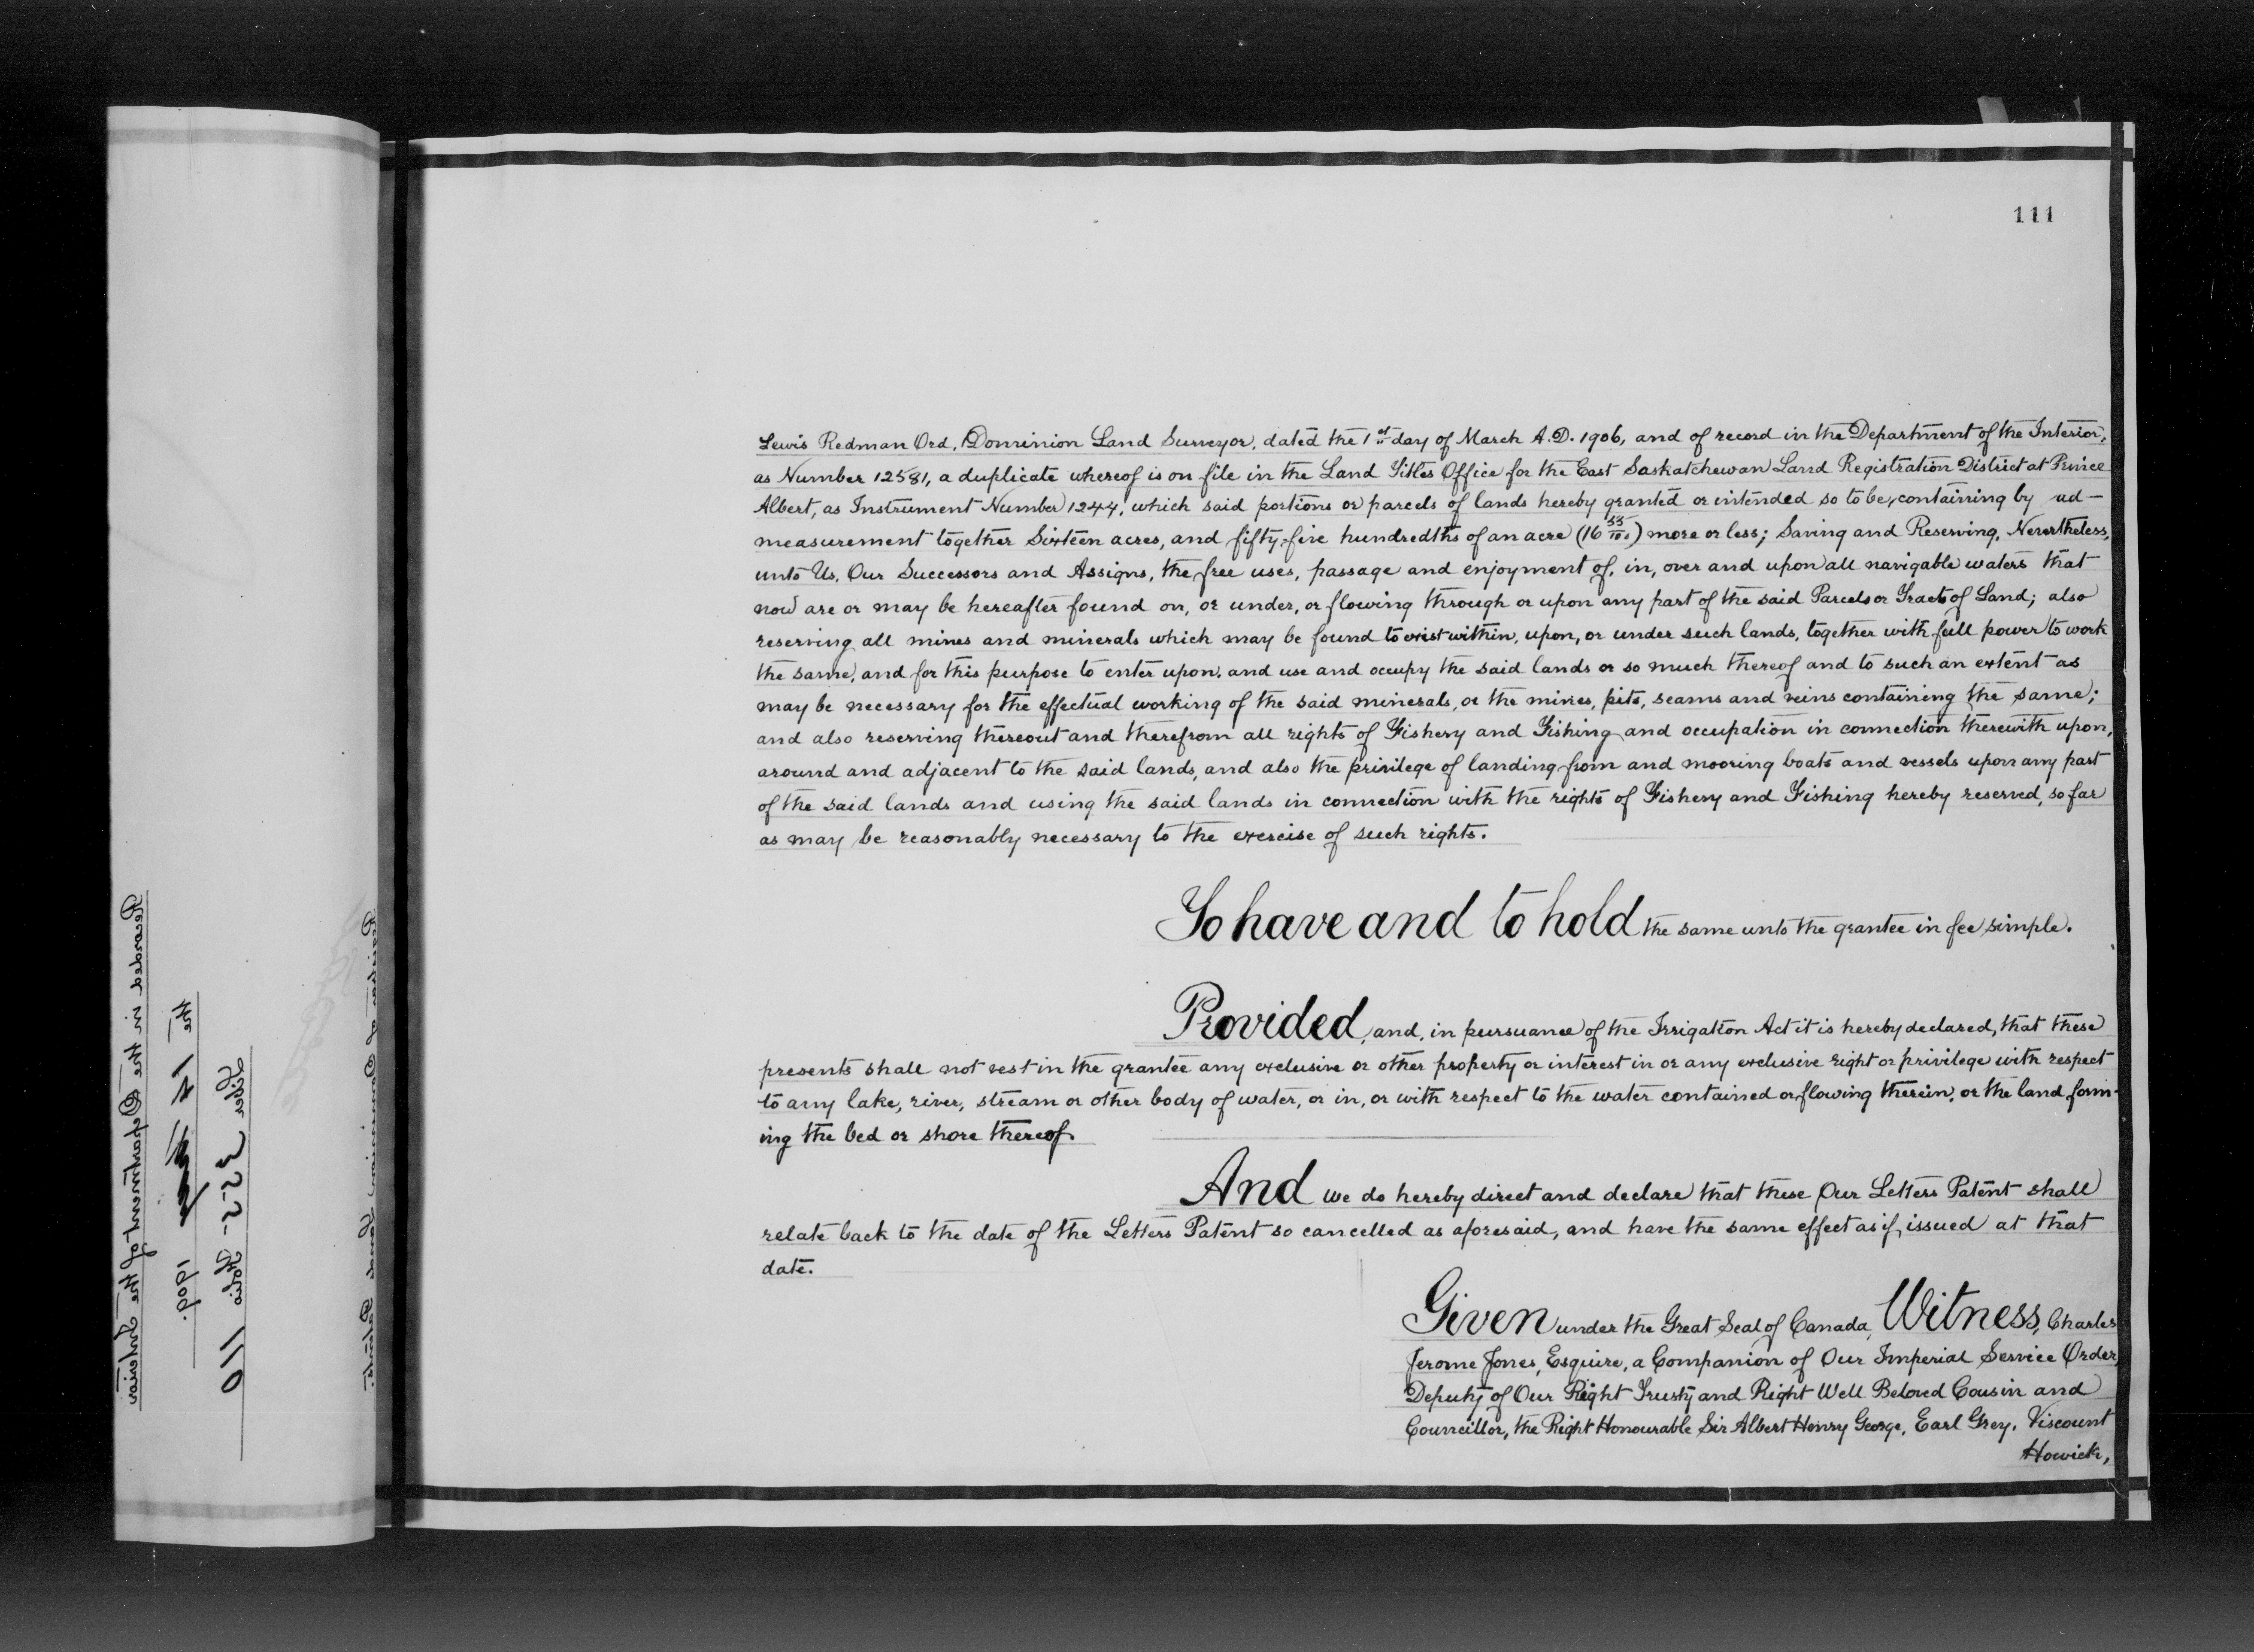 111
Lewis Redman Ord, Dominion Land Surveyor, dated the 1st day of March A.D. 1906, and of record in the Department of the Interior,
as Number 12581, a duplicate whereof is on file in the Land Titles Office for the East Saskatchewan Land Registration District at Prince
Albert, as Instrument Number 1244, which said portions or parcels of lands hereby granted or intended so to be, containing by ad-
measurement together Sixteen acres, and fifty-five hundredths of an acre (16 55/100) more or less; Saving and Reserving, Nevertheless,
unto Us, Our Successors and Assigns, the free uses, passage and enjoyment of, in, over and upon all navigable waters that
now are or may be hereafter found on, or under, or flowing through or upon any part of the said Parcels or Tracts of Land; also
reserving all mines and minerals which may be found to exist within, upon, or under such lands, together with full power to work
the same, and for this purpose to enter upon, and use and occupy the said lands or so much thereof and to such an extent as
may be necessary for the effectual working of the said minerals, or the mines, pits, seams and veins containing the same;
and also reserving thereout and therefrom all rights of Fishery and Fishing and occupation in connection therewith upon,
around and adjacent to the said lands, and also the privilege of landing from and mooring boats and vessels upon any part
of the said lands and using the said lands in connection with the rights of Fishery and Fishing hereby reserved, so far
as may be reasonably necessary to the exercise of such rights.
To have and to hold the same unto the grantee in fee simple.
Provided, and, in pursuance of the Irrigation Act it is hereby declared, that these
presents shall not vest in the grantee any exclusive or other property or interest in or any exclusive right or privilege with respect
to any lake, river, stream or other body of water, or in, or with respect to the water contained or flowing therein, or the land form-
ing the bed or shore thereof.
And we do hereby direct and declare that these Our Letters Patent shall
relate back to the date of the Letters Patent so cancelled as aforesaid, and have the same effect as if issued at that
date.
Given under the Great Seal of Canada, Witness, Charles
Jerome Jones, Esquire, a Companion of Our Imperial Service Order,
Deputy of Our Right Trusty and Right Well Beloved Cousin and
Councillor, the Right Honourable Sir Albert Henry George, Earl Grey, Viscount
Howick,
Recorded in the Department of the Interior
the 14 1909.
Liber 355 Folio 110